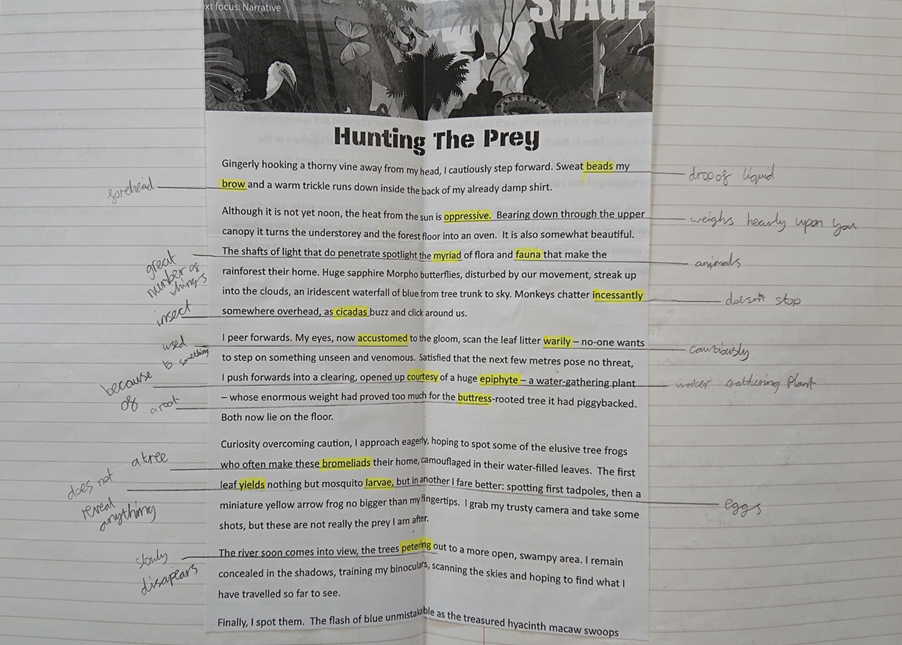 xt focus: Narrative
STAGE
Hunting The Prey
Gingerly hooking a thorny vine away from my head, I cautiously step forward. Sweat beads my
brow and a warm trickle runs down inside the back of my already damp shirt.
Although it is not yet noon, the heat from the sun is oppressive. Bearing down through the upper
canopy it turns the understorey and the forest floor into an oven. It is also somewhat beautiful.
The shafts of light that do penetrate spotlight the myriad of flora and fauna that make the
rainforest their home. Huge sapphire Morpho butterflies, disturbed by our movement, streak up
into the clouds, an iridescent waterfall of blue from tree trunk to sky. Monkeys chatter incessantly
somewhere overhead, as cicadas buzz and click around us.
I peer forwards. My eyes, now accustomed to the gloom, scan the leaf litter warily – no-one wants
to step on something unseen and venomous. Satisfied that the next few metres pose no threat,
I push forwards into a clearing, opened up courtesy of a huge epiphyte – a water-gathering plant
– whose enormous weight had proved too much for the buttress-rooted tree it had piggybacked.
Both now lie on the floor.
Curiosity overcoming caution, I approach eagerly, hoping to spot some of the elusive tree frogs
who often make these bromeliads their home, camouflaged in their water-filled leaves. The first
leaf yields nothing but mosquito larvae, but in another I fare better: spotting first tadpoles, then a
miniature yellow arrow frog no bigger than my fingertips. I grab my trusty camera and take some
shots, but these are not really the prey I am after.
The river soon comes into view, the trees petering out to a more open, swampy area. I remain
concealed in the shadows, training my binoculars, scanning the skies and hoping to find what I
have travelled so far to see.
Finally, I spot them. The flash of blue unmistakable as the treasured hyacinth macaw swoops
forehead
great
number of
things
insect
used
to something
because
of
a root
a tree
does not
reveal
anything
slowly
disapears
drop of liquid
weighs hearly upon you
animals
doesn't stop
cautiously
water gathering plant
eggs